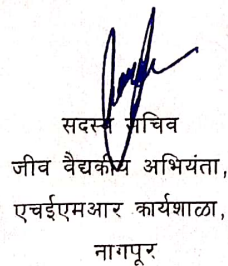 सदस्य सचिव
जीव वैद्यकीय अभियंता,
एचईएमआर कार्यशाळा,
नागपूर